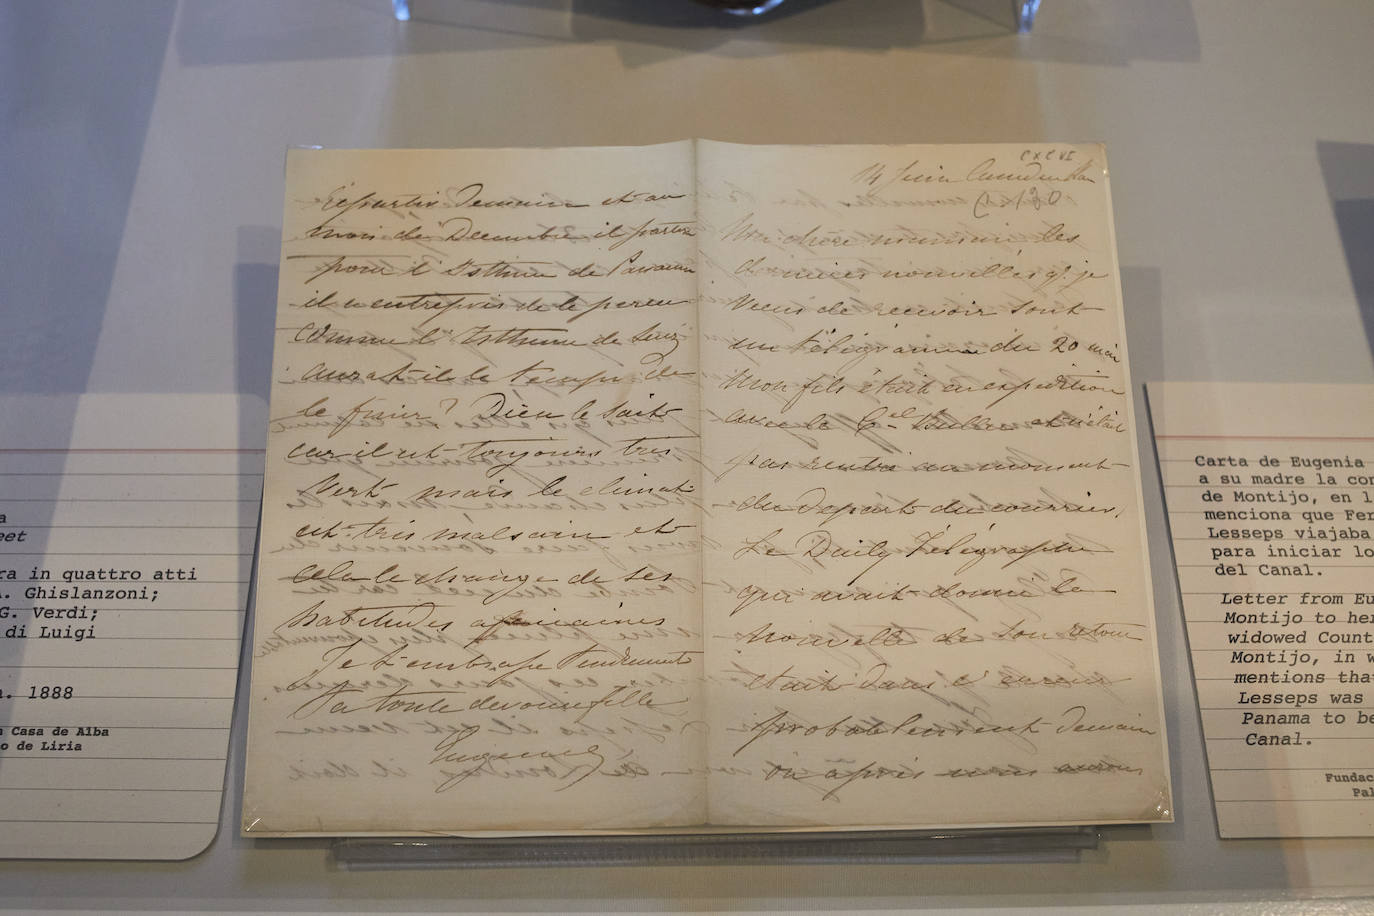 a
eet
ra in quattro atti
A. Ghislanzoni;
G. Verdi;
di Luigi
a. 1888
n Casa de Alba
o de Liria
répartir demain et au
mois de Décembre il partira
pour l'Isthme de Panama
il a entrepris de le percer
comme l'Isthme de Suez
aurat-il le temps de
le finir? Dieu le sait
car il est toujours très
vert mais le climat
est très malsain et
cela le change de ses
habitudes africaines
Je t'embrasse tendrement
Ta toute devouée fille
Eugenie
CXCVI
14 Juin Camden
Ma chère maman les
dernières nouvelles q. je
viens de recevoir sont
un télégramme du 20 mai
Mon fils était en expédition
avec le Cel Buller et n'était
pas rentré au moment
du départ du courrier.
Le Daily Télégraphe
qui avait donné la
nouvelle de son retour
était dans
probablement demain
ou après nous aurons
Carta de Eugenia
a su madre la con
de Montijo, en l
menciona que Fer
Lesseps viajaba
para iniciar lo
del Canal.
Letter from Eu
Montijo to her
widowed Count
Montijo, in w
mentions tha
Lesseps was
Panama to be
Canal.
Fundac
Pal